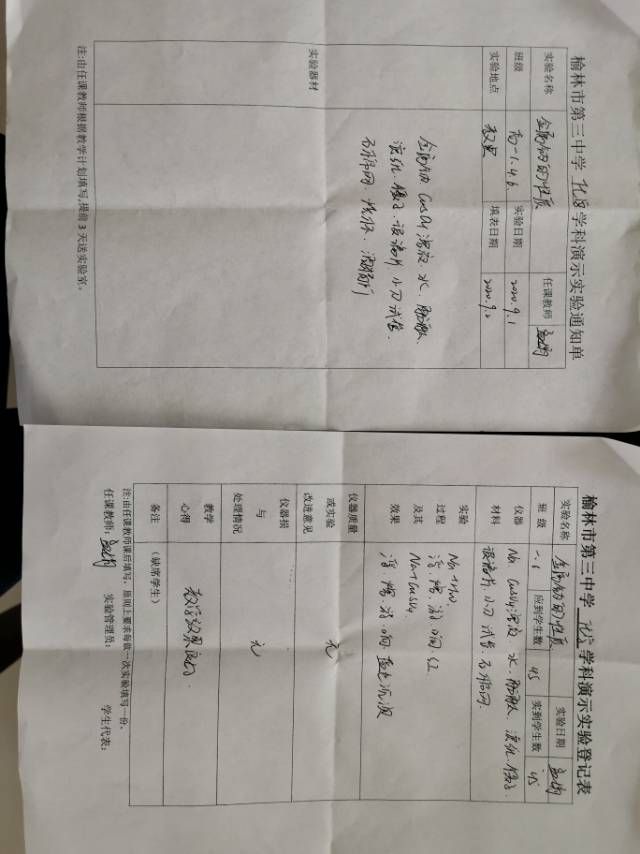 榆林市第三中学 化学 学科演示实验通知单
实验名称 金属钠的性质 任课教师
班级 高一1.4.6 实验日期 2020.9.1
实验地点 教室 填表日期 2020.9.2
实验器材
金属钠 CuSO4溶液 水、酚酞
滤纸、镊子、玻璃片、小刀 试管、
石棉网、烧杯、酒精灯
注:由任课教师根据教学计划填写,提前3天送实验室。
榆林市第三中学 化学 学科演示实验登记表
实验名称 金属钠的性质 实验日期
班级 应到学生数 45 实到学生数 45
仪器材料 Na、CuSO4溶液、水、酚酞、滤纸、镊子、
玻璃片、小刀 试管、石棉网
实验过程及其效果
Na+H2O
浮、熔、游、响、红
Na+CuSO4
浮、熔、游、响、蓝色沉淀
仪器质量或实验改进意见 无
仪器损与处理情况 无
教学心得 教学效果良好.
备注 (缺席学生)
注:由任课教师课后填写,原则上要求每做一次实验填写一份。
任课教师: 实验管理员: 学生代表: